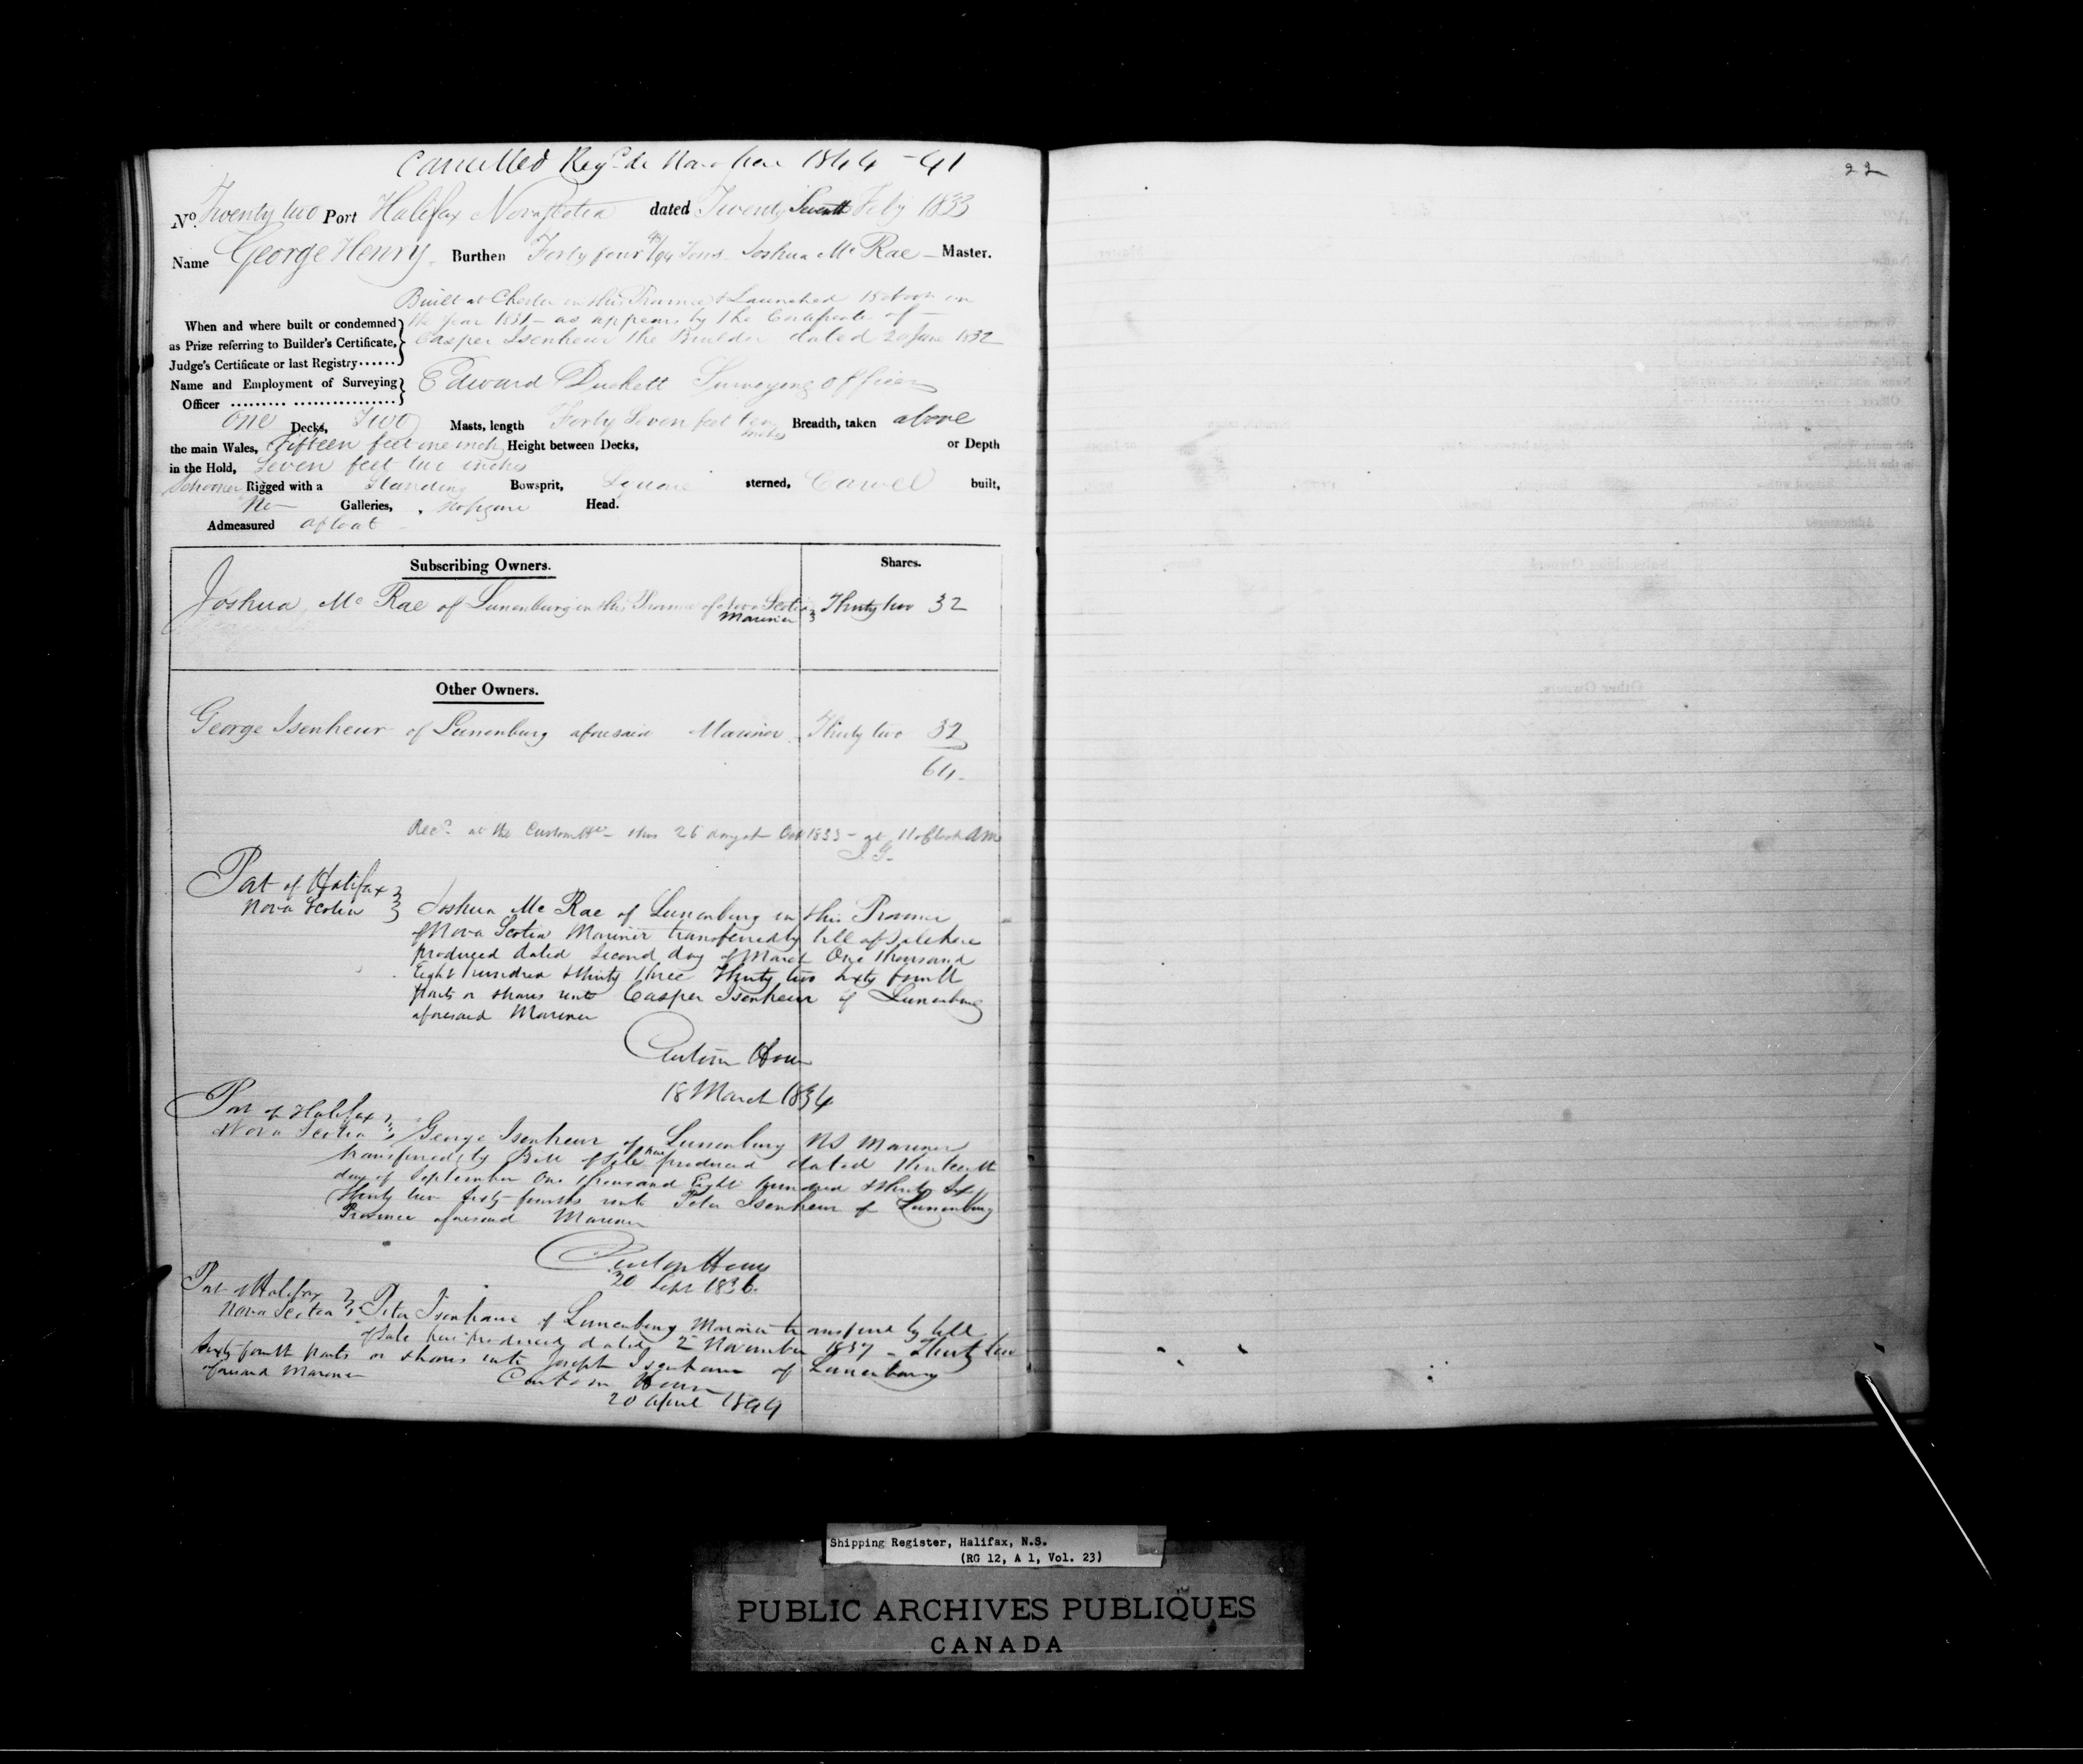 Cancelled Regd de Novo here 1844 - 41
22
No. Twenty two Port Halifax Nova Scotia dated Twenty Seventh Feby 1833
Name George Henry Burthen Forty four /94 Tons Joshua Mc Rae - Master.
Built at Chester in this Province & Launched in
When and where built or condemned the year 1831 - as appears by the Certificate of -
as Prize referring to Builder's Certificate, Casper Isenheur the Builder dated 20 June 1832
Judge's Certificate or last Registry
Name and Employment of Surveying Edward Duckett Surveying officer
Officer
One Decks, Two Masts, length Forty Seven feet ten inches Breadth, taken above
the main Wales, Fifteen feet one inch Height between Decks, or Depth
in the Hold, Seven feet two inches
Schooner Rigged with a Standing Bowsprit, Square sterned, Carvel built,
No Galleries, no figure Head.
Admeasured afloat
Subscribing Owners. Shares.
Joshua Mc Rae of Lunenburg in this Province of Nova Scotia Thirty two 32
Mariner
Other Owners.
George Isenheur of Lunenburg aforesaid Mariner Thirty two 32
64
Recd at the Custom Hse this 26 day of Oct 1833 - at 11 oClock am
J. G.
Port of Halifax
Nova Scotia Joshua Mc Rae of Lunenburg in this Province
of Nova Scotia Mariner transferred by bill of Sale here
produced dated Second day of March One thousand
Eight hundred & thirty three Thirty two sixty fourth
parts or shares unto Casper Isenheur of Lunenburg
aforesaid Mariner
Custom House
18 March 1834
Port of Halifax
Nova Scotia George Isenheur of Lunenburg NS Mariner
transferred by Bill of Sale here produced dated thirteenth
day of September One thousand Eight hundred & thirty six
Thirty two sixty-fourths unto Peter Isenheur of Lunenburg
Province aforesaid Mariner
Custom House
20 Sepr 1836.
Port of Halifax
Nova Scotia Peter Isenhaur of Lunenburg Mariner transferred by bill
of Sale here produced dated 2 November 1837 - Thirty two
sixty fourth parts or shares unto Joseph Isenhaur of Lunenburg
aforesaid Mariner
Custom House
20 April 1844
Shipping Register, Halifax, N.S.
(RG 12, A 1, Vol. 23)
PUBLIC ARCHIVES PUBLIQUES
CANADA